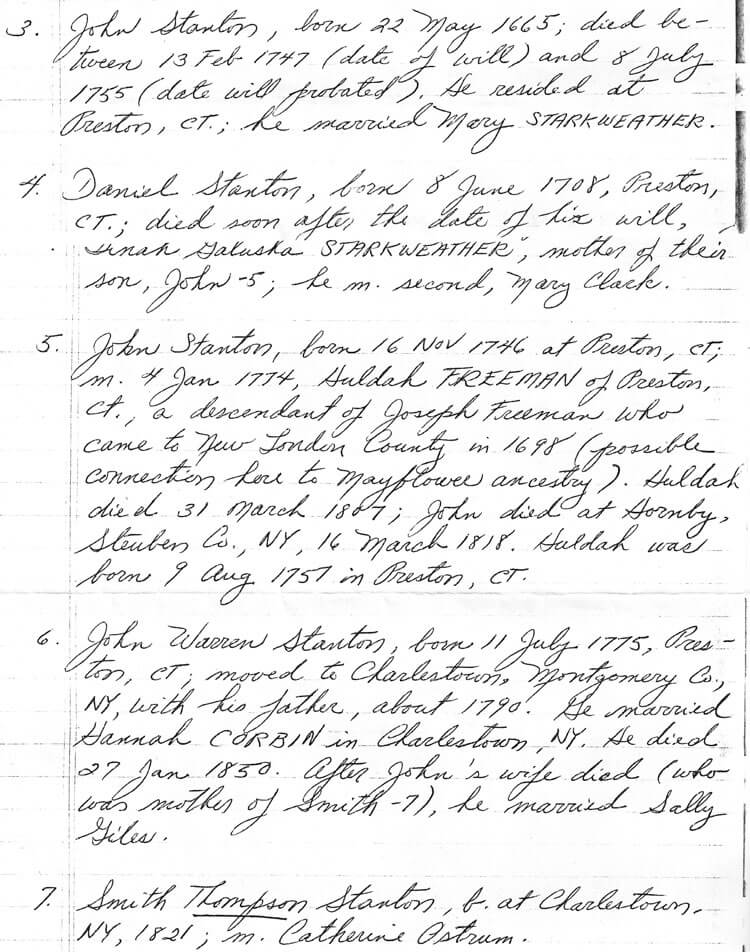 3. John Stanton, born 22 May 1665; died be-
tween 13 Feb 1747 (date of will) and 8 July
1755 (date will probated). He resided at
Preston, CT.; he married Mary STARKWEATHER.
4. Daniel Stanton, born 8 June 1708, Preston,
CT.; died soon after the date of his will,
Dinah Galuska STARKWEATHER, mother of their
son, John-5; he m. second, Mary Clark.
5. John Stanton, born 16 Nov 1746 at Preston, CT;
m. 4 Jan 1774, Huldah FREEMAN of Preston,
Ct., a descendant of Joseph Freeman who
came to New London County in 1698 (possible
connection here to Mayflower ancestry). Huldah
died 31 March 1807; John died at Hornby,
Steuben Co., NY, 16 March 1818. Huldah was
born 9 Aug 1757 in Preston, CT.
6. John Warren Stanton, born 11 July 1775, Pres-
ton, CT; moved to Charlestown, Montgomery Co.,
NY, with his father, about 1790. He married
Hannah CORBIN in Charlestown, NY. He died
27 Jan 1850. After John's wife died (who
was mother of Smith-7), he married Sally
Giles.
7. Smith Thompson Stanton, b. at Charlestown,
NY, 1821; m. Catherine Ostrum.